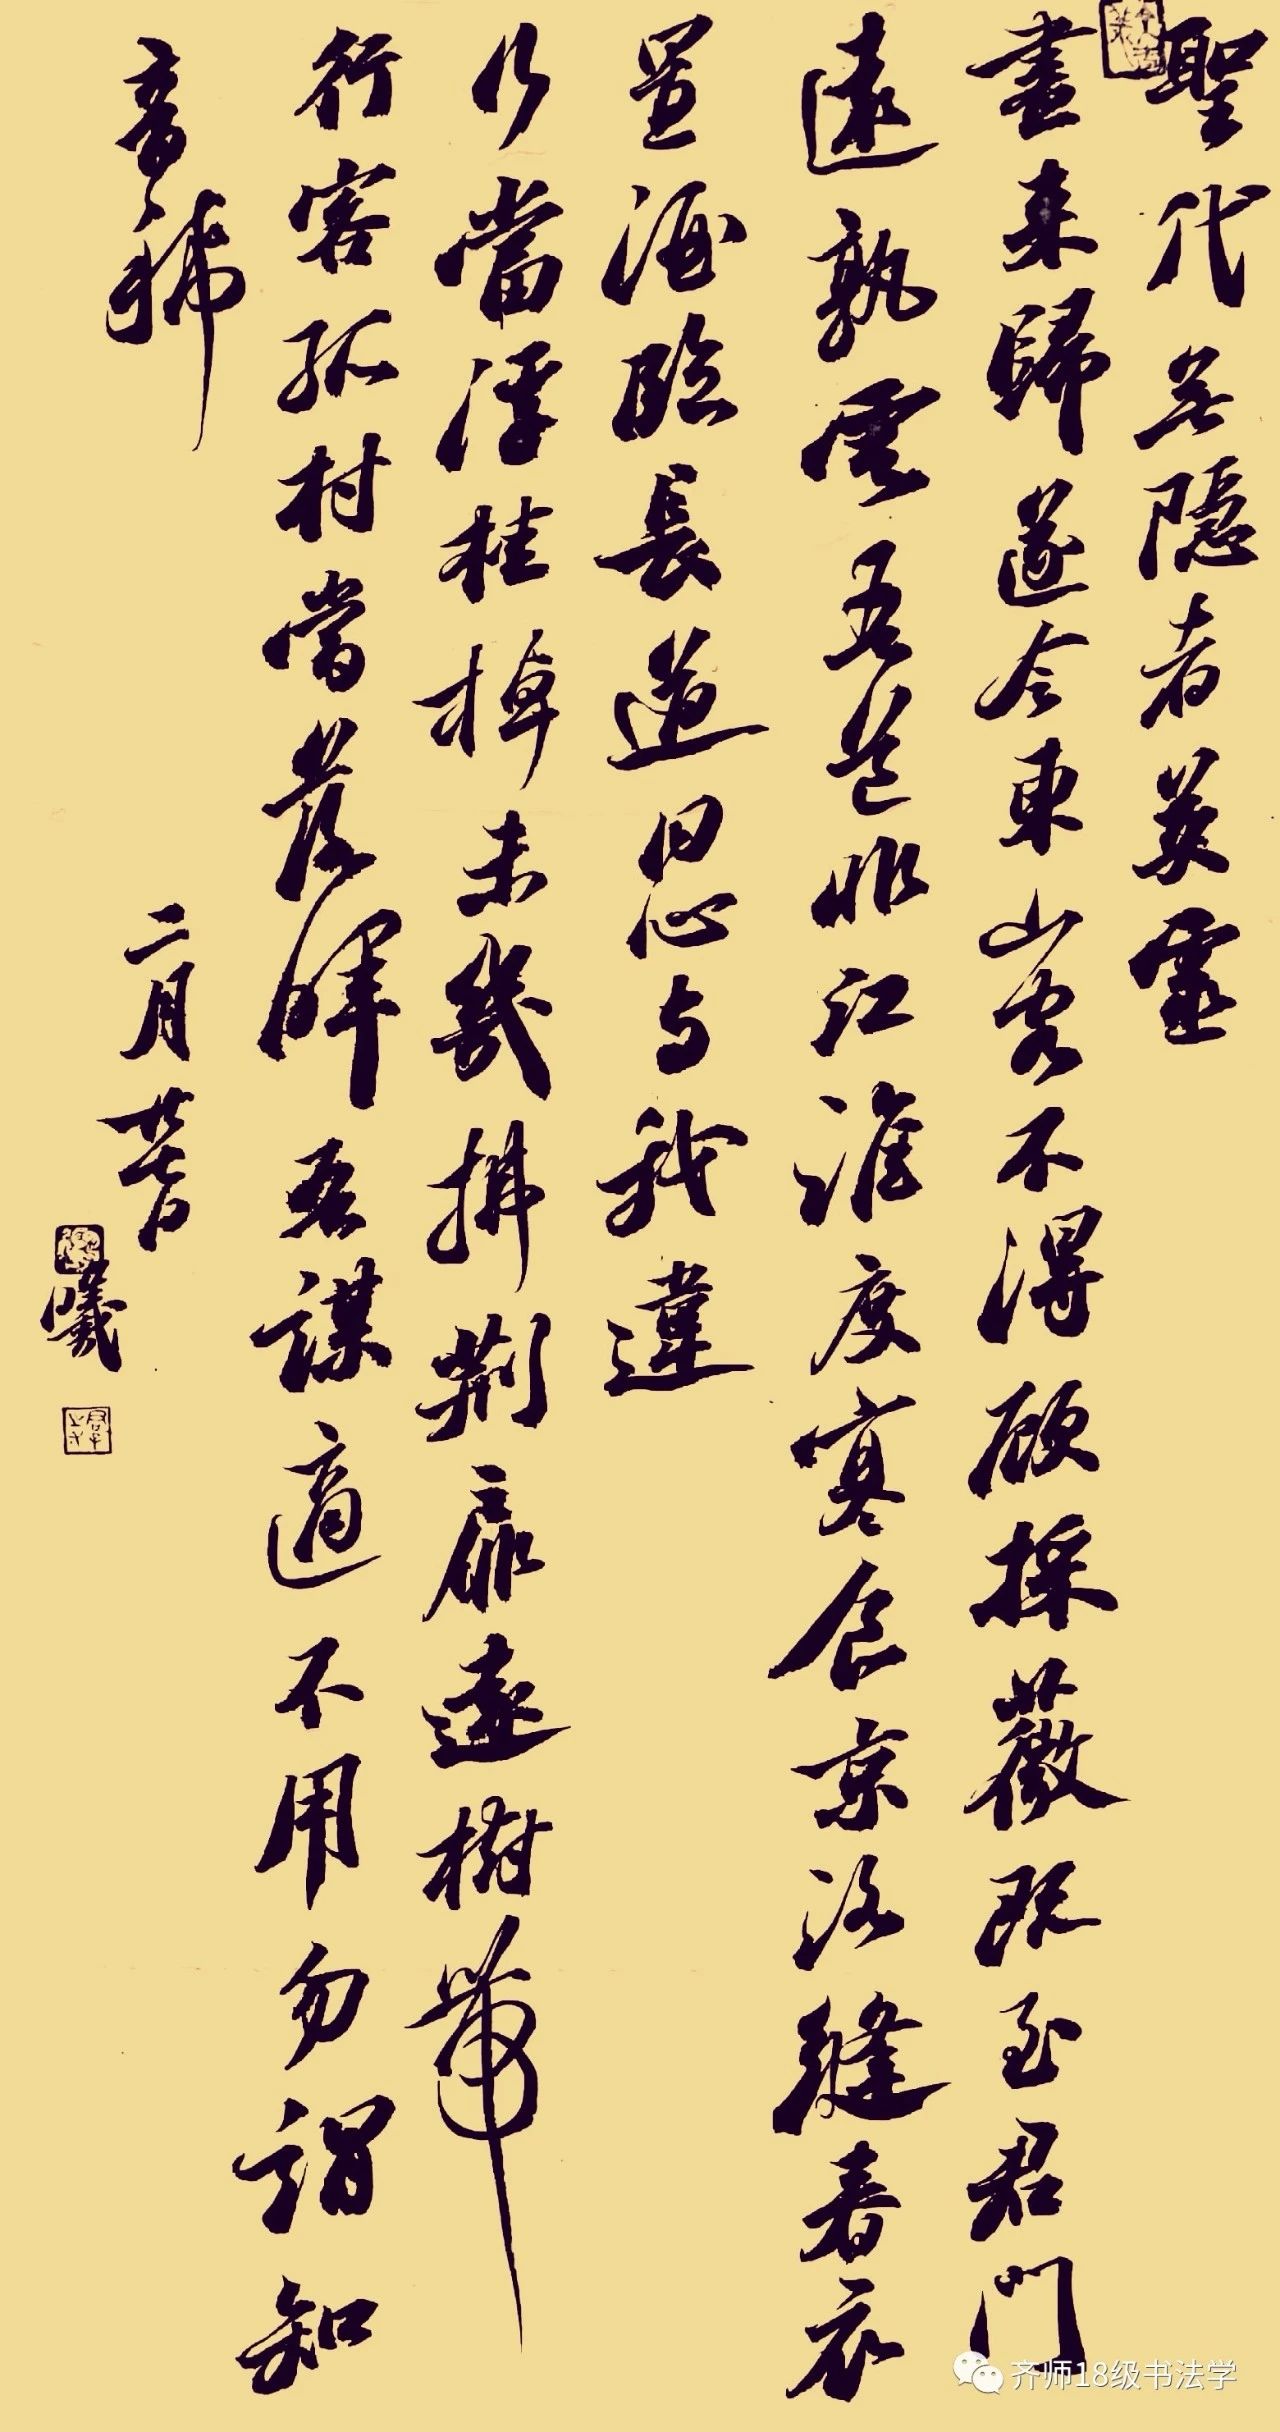 聖代無隱者英靈
盡来歸遂令東山客不得顧採薇既至君門
遠孰雲吾道非江淮度寒食京洛縫春衣
置酒臨長道同心與我違
行當浮桂棹未幾拂荊扉遠樹帶
行客孤村當落暉吾謀適不用勿謂知
音稀
二月廿
曦
齐师18级书法学